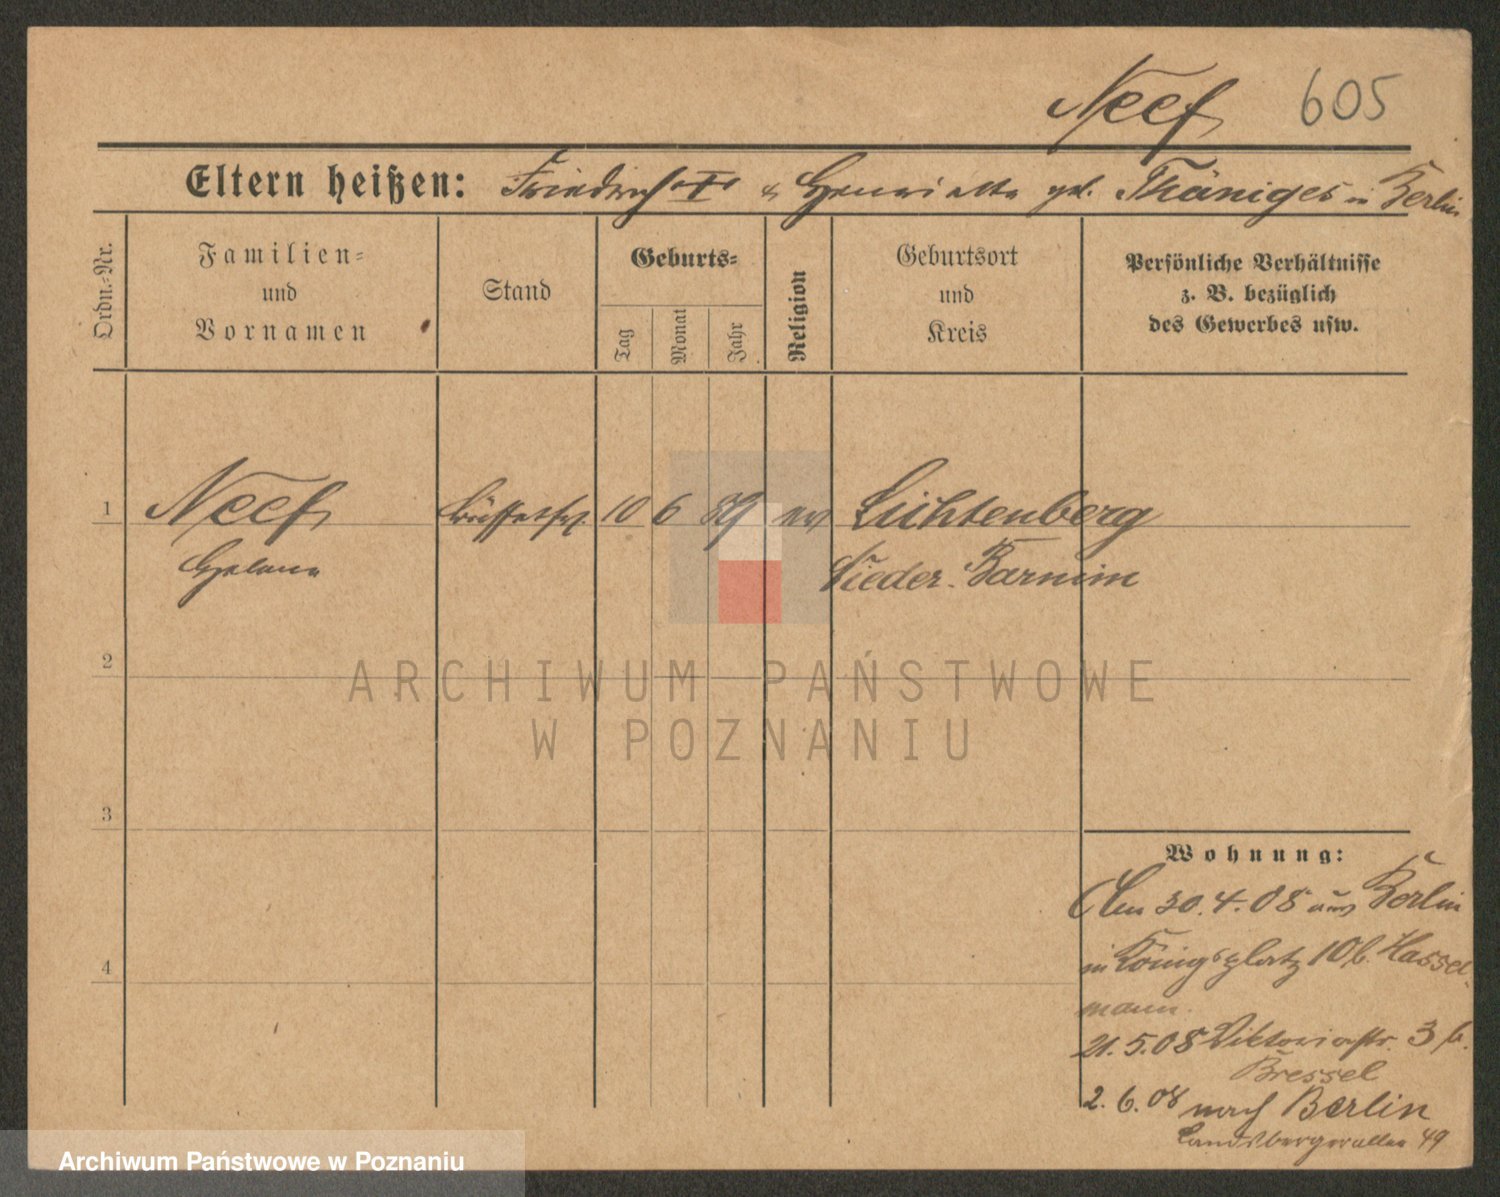 Neef 605
Eltern heißen: Friedrich & Henriette geb. Thäniges in Berlin
Ordn.-Nr.
Familien- und Vornamen
Stand
Geburts-
Tag
Monat
Jahr
Religion
Geburtsort und Kreis
Persönliche Verhältnisse
z. B. bezüglich
des Gewerbes usw.
1 Neef 10 6 89 ev Lichtenberg
Helene Nieder-Barnim
2
3
4
Wohnung:
Am 30.4.08 aus Berlin
in Königsplatz 10 b. Hassel-
mann.
21.5.08 Viktoriastr. 3 b.
Bressel
2.6.08 nach Berlin
Landsbergerallee 49
ARCHIWUM PAŃSTWOWE
W POZNANIU
Archiwum Państwowe w Poznaniu